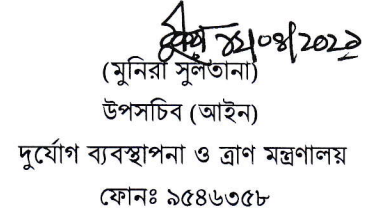 ১২/০৪/২০২১
(মুনিরা সুলতানা)
উপসচিব (আইন)
দুর্যোগ ব্যবস্থাপনা ও ত্রাণ মন্ত্রণালয়
ফোনঃ ৯৫৪৬৩৫৮